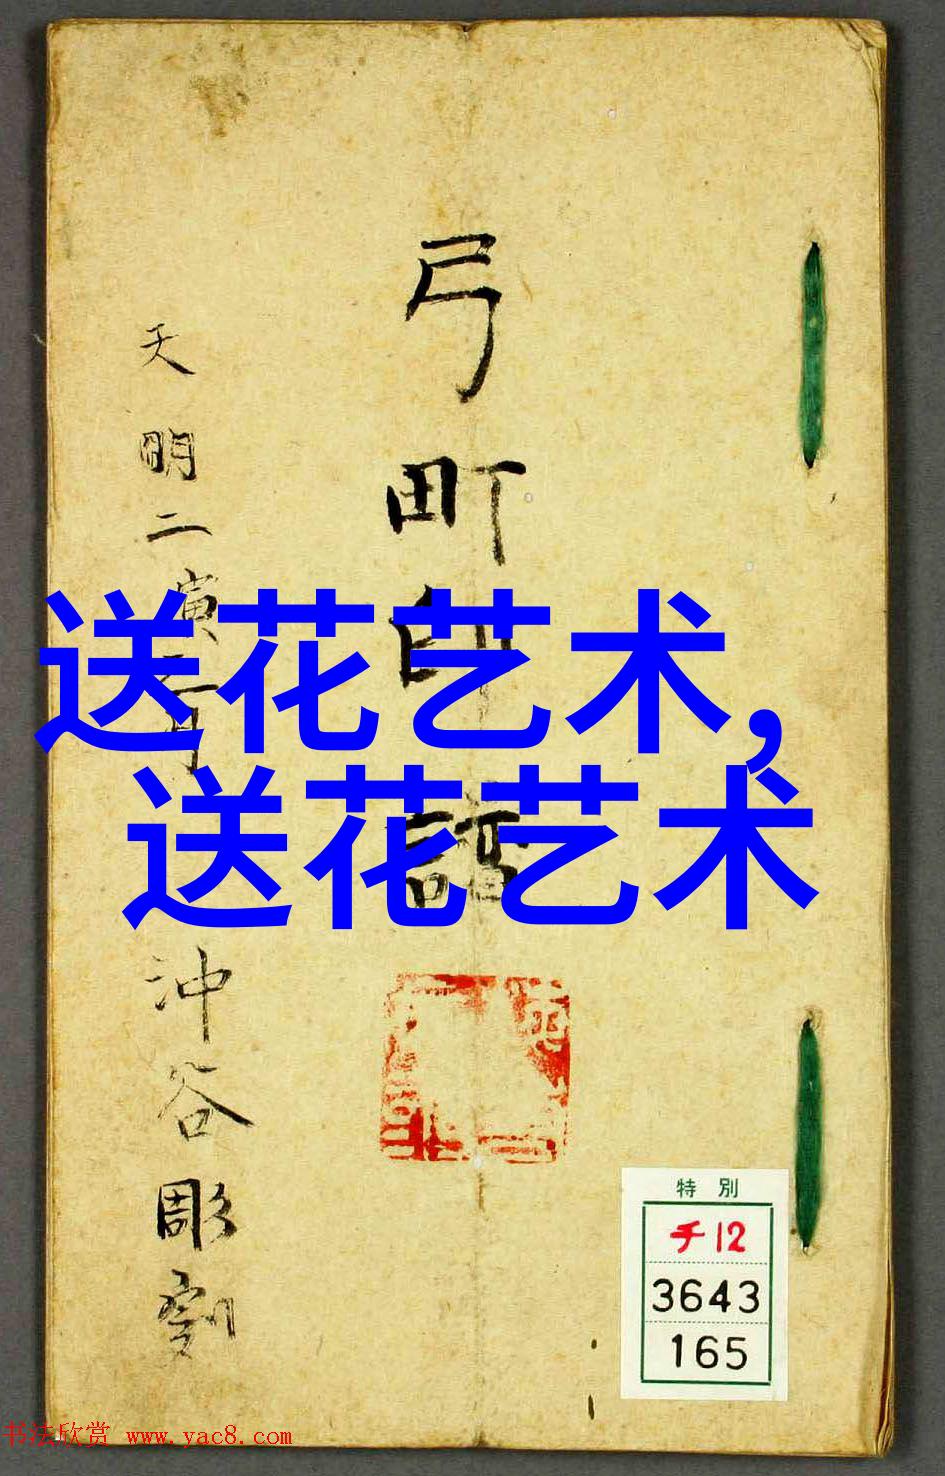 弓町印譜
天明二寅二月
沖谷彫刻
送花艺术，
送花艺术
特別
チ12
3643
165
书法欣赏 www.yac8.com